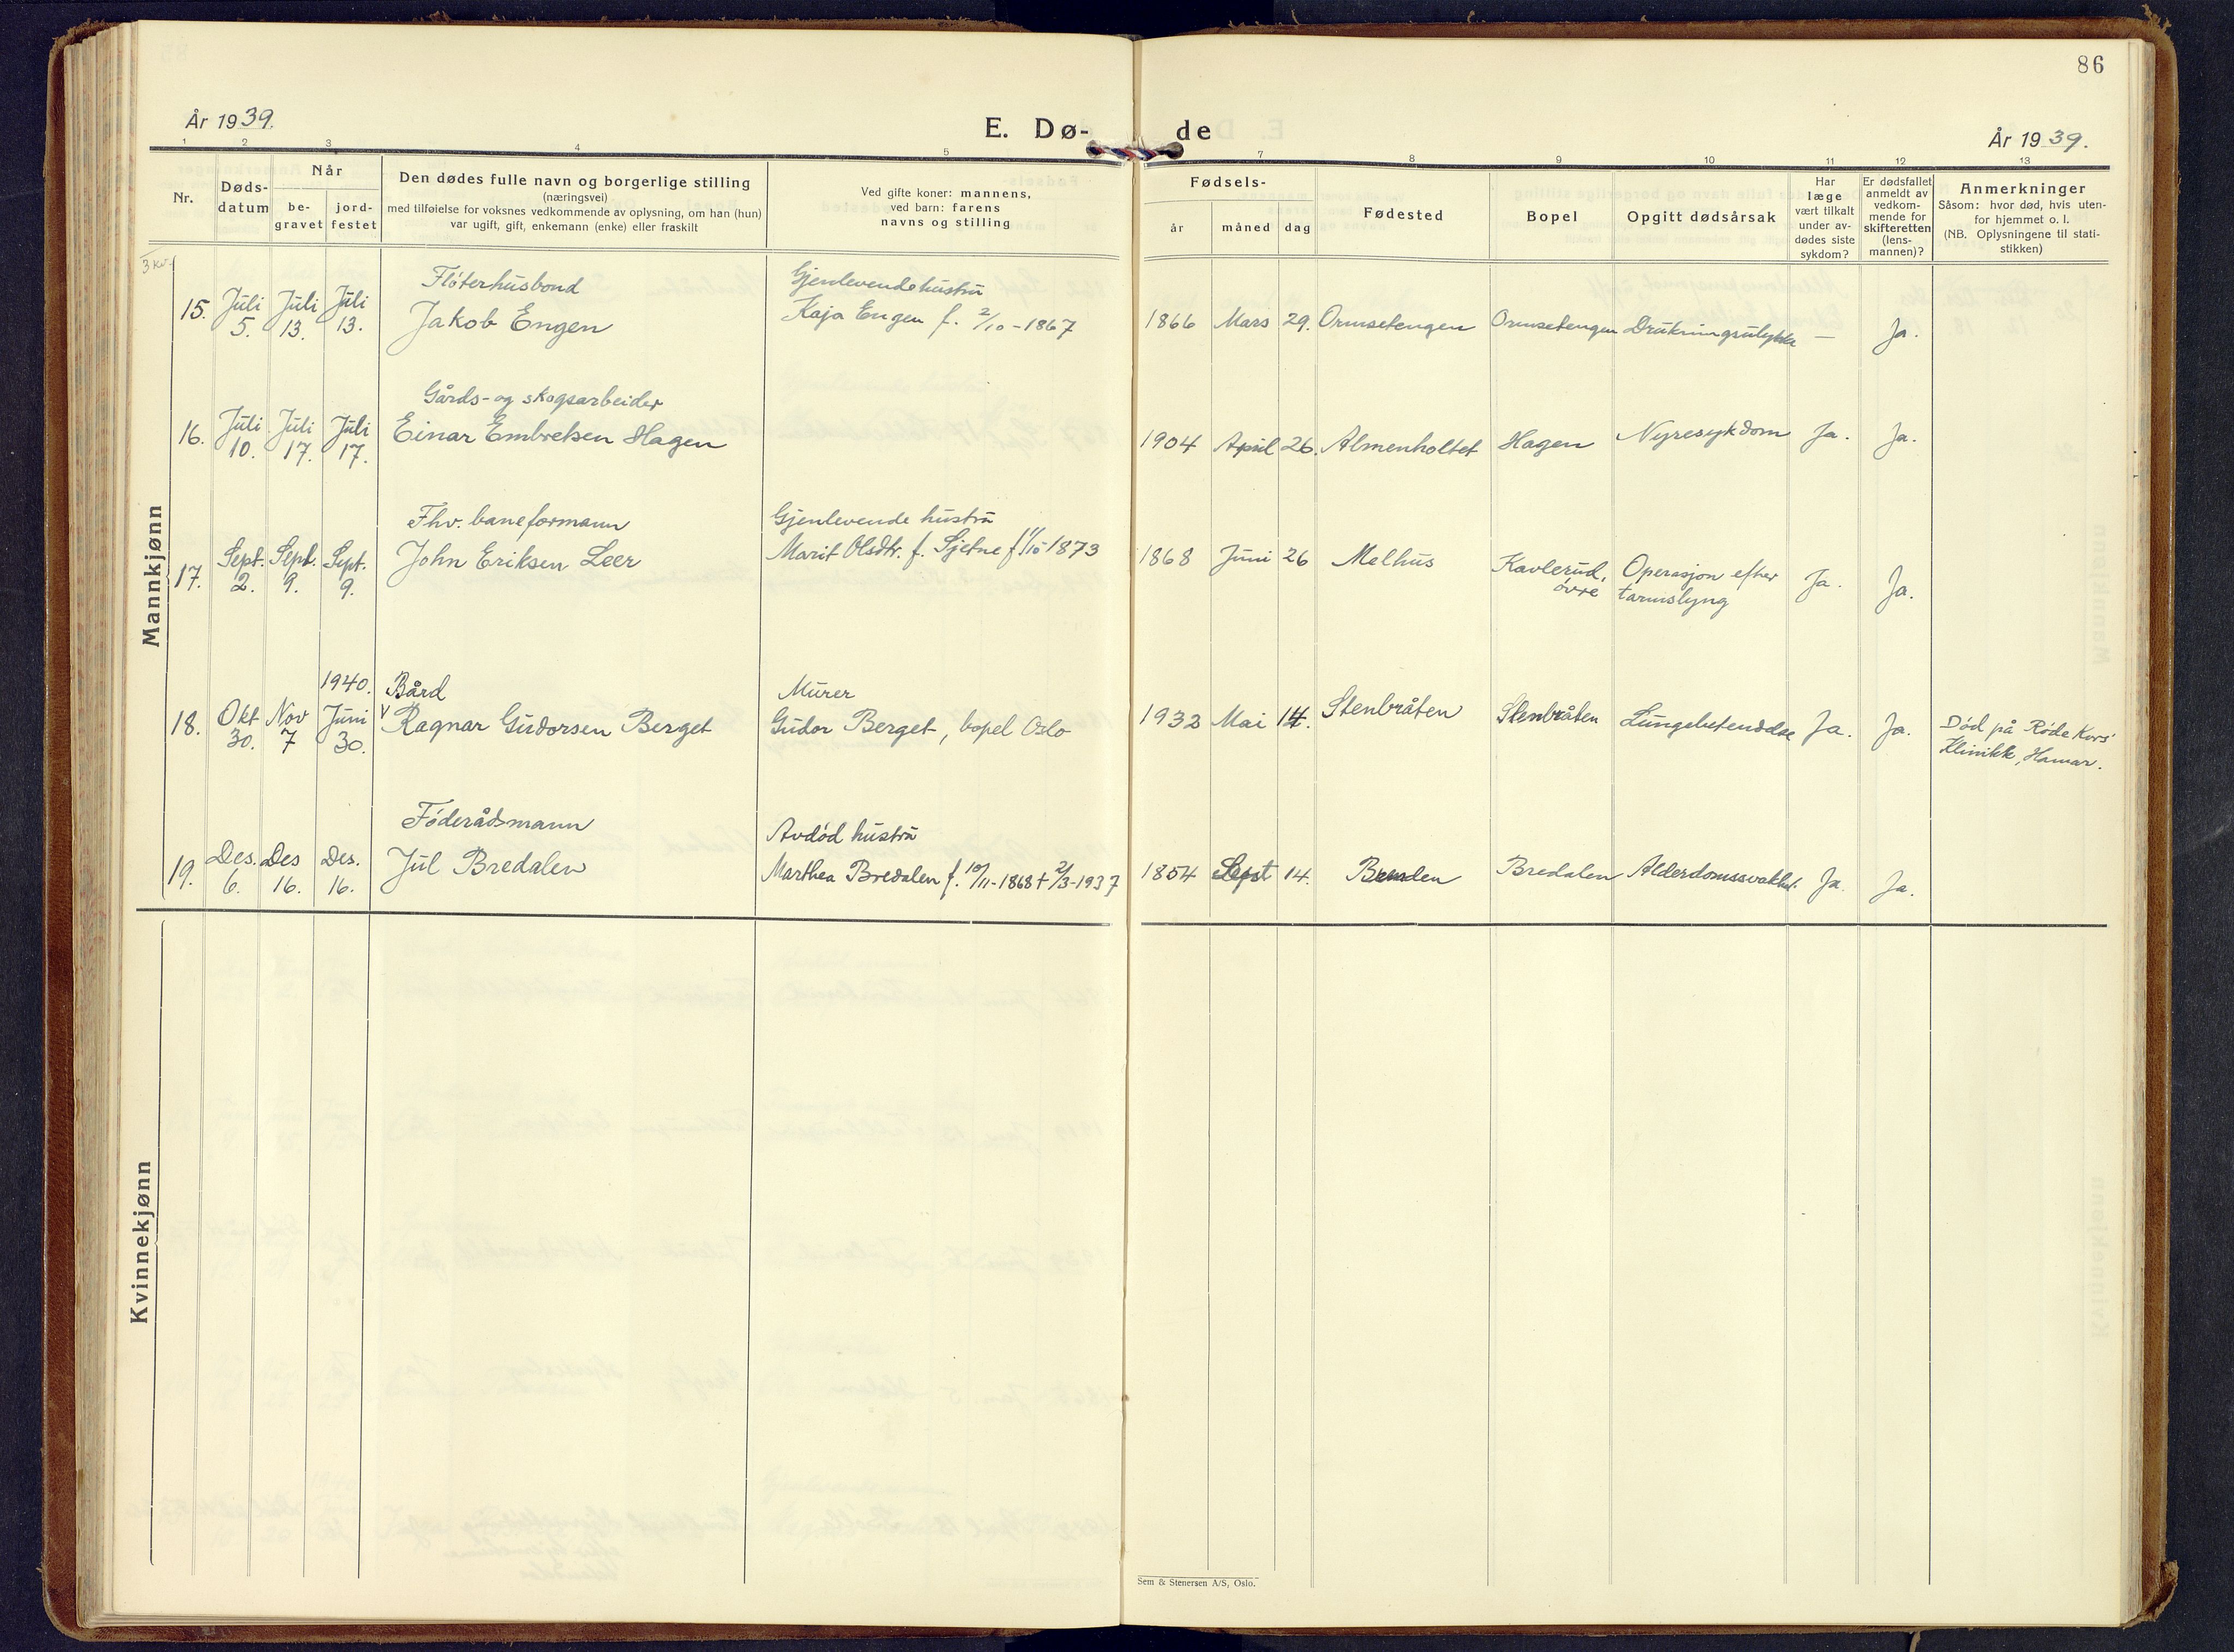 86
År 1939.
E. Dø-
de
År 1939.
1 2 3 4 5 7 8 9 10 11 12 13
Nr.
Døds-
datum
Når
be-
gravet
jord-
festet
Den dødes fulle navn og borgerlige stilling
(næringsvei)
med tilføielse for voksnes vedkommende av oplysning, om han (hun)
var ugift, gift, enkemann (enke) eller fraskilt
Ved gifte koner: mannens,
ved barn: farens
navns og stilling
Fødsels-
år måned dag
Fødested
Bopel
Opgitt dødsårsak
Har
læge
vært tilkalt
under av-
dødes siste
sykdom?
Er dødsfallet
anmeldt av
vedkom-
mende for
skifteretten
(lens-
mannen)?
Anmerkninger
Såsom: hvor død, hvis uten-
for hjemmet o. l.
(NB. Oplysningene til stati-
stikken)
Mannkjønn
3 kv.
Fløterhusbond Gjenlevende hustru
15. Juli Juli Juli Jakob Engen Kaja Engen f. 2/10-1867 1866 Mars 29. Ormsetengen Ormsetengen Drukningsulykke — Ja.
5. 13. 13.
Gårds- og skogsarbeider
16. Juli Juli Juli Einar Embretsen Hagen 1904 April 26. Almenholtet Hagen Nyresykdom Ja. Ja.
10. 17. 17.
Fhv. baneformann Gjenlevende hustru
17. Sept. Sept. Sept. John Eriksen Leer Marit Olsdtr. f. Sjetne f. 1873 1868 Juni 26 Melhus Kavlerud, Operasjon efter Ja. Ja.
2. 9. 9. øvre tarmslyng
1940. Bård Murer
18. Okt Nov Juni V Ragnar Gudorsen Berget Gudor Berget, bopel Oslo 1932 Mai 14. Stenbråten Stenbråten Lungebetendelse Ja. Ja. Død på Røde Kors'
30. 7 30. Klinikk, Hamar.
Føderådsmann Avdød hustru
19. Des. Des Des. Jul Bredalen Marthea Bredalen f. 10/11-1868 + 2/3-1937 1854 Sept 14. Bredalen Alderdomssvakhet. Ja. Ja.
6. 16. 16.
Kvinnekjønn
Sem & Stenersen A/S, Oslo.